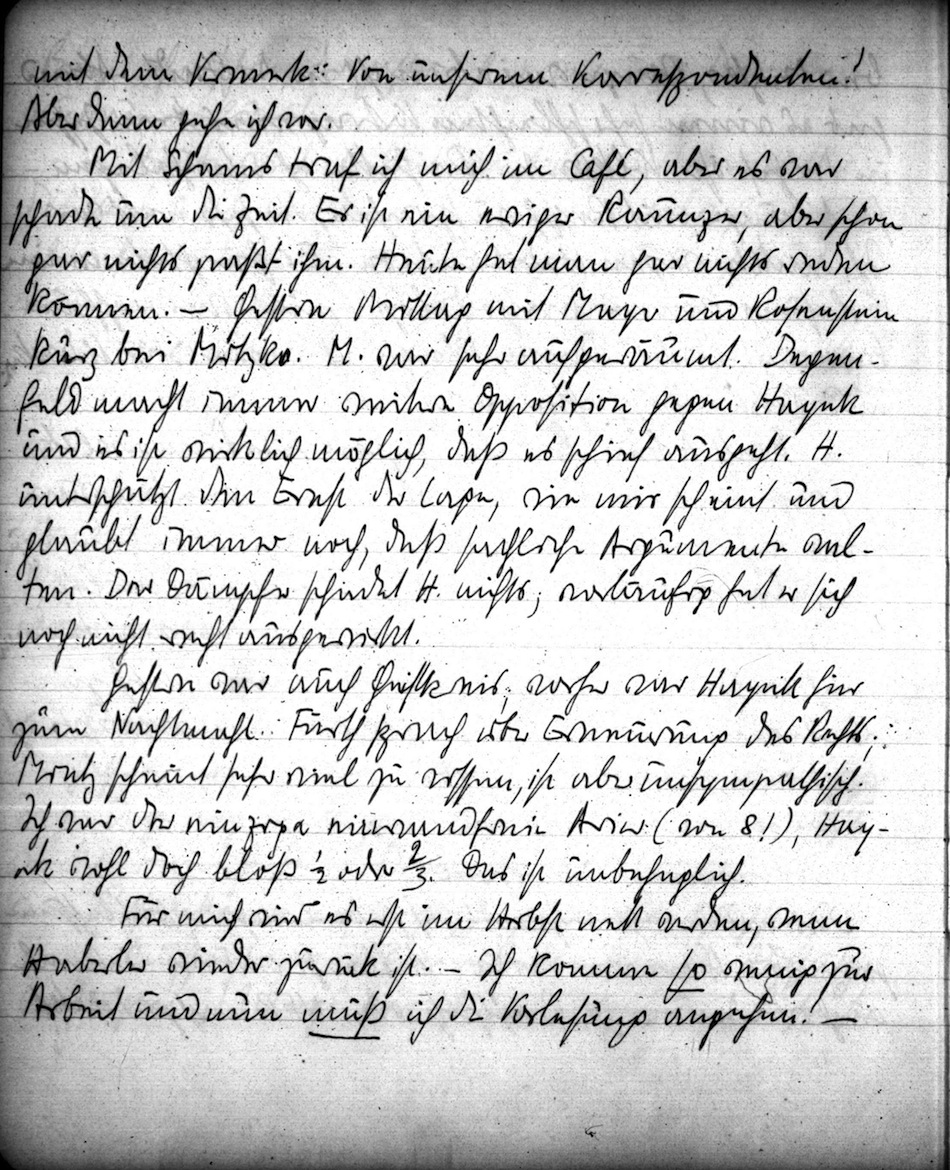 mit dem Vermerk: Von unserem Korrespondenten!
Aber dann gehe ich vor.
Mit Schams traf ich mich im Café, aber es war
schade um die Zeit. Er ist ein ewiger Raunzer, aber schon
gar nichts paßt ihm. Heute hat man gar nichts reden
können. — Gestern Mittag mit Mayer und Rosenstein
kurz bei Motzko. M. war sehr aufgeräumt. Degen-
feld macht immer weitere Opposition gegen Hayek
und es ist wirklich möglich, daß es schief ausgeht. H.
unterschätzt den Ernst der Lage, wie mir scheint und
glaubt immer noch, daß sachliche Argumente wal-
ten. Der Dämpfer schadet H. nichts; vorläufig hat er sich
noch nicht recht ausgewirkt.
Gestern war auch Geistkreis; vorher war Hayek hier
zum Nachtmahl. Fürth sprach über Erneuerung des Rechts;
scheint sehr viel zu wissen, ist aber unsympathisch.
Ich war der einzige einwandfreie Arier (von 8!), Hay-
ek wohl doch bloß ½ oder ⅔. Das ist unbehaglich.
Für mich wird es erst im Herbst nett werden, wenn
Haberler wieder zurück ist. — Ich komme so wenig zur
Arbeit und nun muß ich die Vorlesung angehen! —